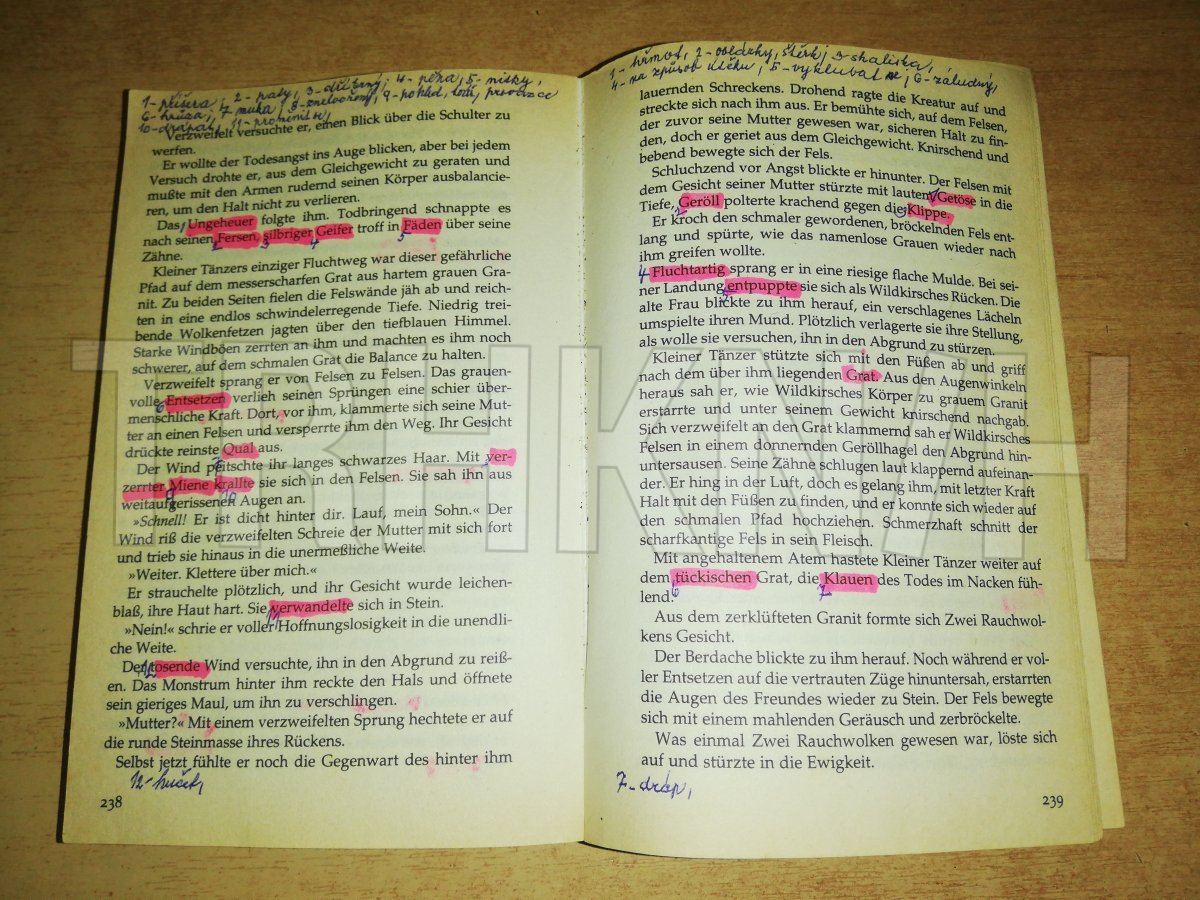 1-příšera, 2-paty, 3-stříbrný, 4-pěna, 5-nitky,
6-hrůza, 7 muka, 8-znetvořený, 9-pohled,
10-drápat, 11-proměnit,
Verzweifelt versuchte er, einen Blick über die Schulter zu
werfen.
Er wollte der Todesangst ins Auge blicken, aber bei jedem
Versuch drohte er, aus dem Gleichgewicht zu geraten und
mußte mit den Armen rudernd seinen Körper ausbalancie-
ren, um den Halt nicht zu verlieren.
Das Ungeheuer folgte ihm. Todbringend schnappte es
nach seinen Fersen, silbriger Geifer troff in Fäden über seine
Zähne.
Kleiner Tänzers einziger Fluchtweg war dieser gefährliche
Pfad auf dem messerscharfen Grat aus hartem grauen Gra-
nit. Zu beiden Seiten fielen die Felswände jäh ab und reich-
ten in eine endlos schwindelerregende Tiefe. Niedrig trei-
bende Wolkenfetzen jagten über den tiefblauen Himmel.
Starke Windböen zerrten an ihm und machten es ihm noch
schwerer, auf dem schmalen Grat die Balance zu halten.
Verzweifelt sprang er von Felsen zu Felsen. Das grauen-
volle Entsetzen verlieh seinen Sprüngen eine schier über-
menschliche Kraft. Dort, vor ihm, klammerte sich seine Mut-
ter an einen Felsen und versperrte ihm den Weg. Ihr Gesicht
drückte reinste Qual aus.
Der Wind peitschte ihr langes schwarzes Haar. Mit ver-
zerrter Miene krallte sie sich in den Felsen. Sie sah ihn aus
weitaufgerissenen Augen an.
»Schnell! Er ist dicht hinter dir. Lauf, mein Sohn.« Der
Wind riß die verzweifelten Schreie der Mutter mit sich fort
und trieb sie hinaus in die unermeßliche Weite.
»Weiter. Klettere über mich.«
Er strauchelte plötzlich, und ihr Gesicht wurde leichen-
blaß, ihre Haut hart. Sie verwandelte sich in Stein.
»Nein!« schrie er voller Hoffnungslosigkeit in die unendli-
che Weite.
Der tosende Wind versuchte, ihn in den Abgrund zu reiß-
en. Das Monstrum hinter ihm reckte den Hals und öffnete
sein gieriges Maul, um ihn zu verschlingen.
»Mutter?« Mit einem verzweifelten Sprung hechtete er auf
die runde Steinmasse ihres Rückens.
Selbst jetzt fühlte er noch die Gegenwart des hinter ihm
238
1-hřmot, 2-oblázky, štěrk, 3-skaliska,
4-na způsob útěku, 5-vyklubal se, 6-záludný,
lauernden Schreckens. Drohend ragte die Kreatur auf und
streckte sich nach ihm aus. Er bemühte sich, auf dem Felsen,
der zuvor seine Mutter gewesen war, sicheren Halt zu fin-
den, doch er geriet aus dem Gleichgewicht. Knirschend und
bebend bewegte sich der Fels.
Schluchzend vor Angst blickte er hinunter. Der Felsen mit
dem Gesicht seiner Mutter stürzte mit lautem Getöse in die
Tiefe, Geröll polterte krachend gegen die Klippe.
Er kroch den schmaler gewordenen, bröckelnden Fels ent-
lang und spürte, wie das namenlose Grauen wieder nach
ihm greifen wollte.
4 Fluchtartig sprang er in eine riesige flache Mulde. Bei sei-
ner Landung entpuppte sie sich als Wildkirsches Rücken. Die
alte Frau blickte zu ihm herauf, ein verschlagenes Lächeln
umspielte ihren Mund. Plötzlich verlagerte sie ihre Stellung,
als wolle sie versuchen, ihn in den Abgrund zu stürzen.
Kleiner Tänzer stützte sich mit den Füßen ab und griff
nach dem über ihm liegenden Grat. Aus den Augenwinkeln
heraus sah er, wie Wildkirsches Körper zu grauem Granit
erstarrte und unter seinem Gewicht knirschend nachgab.
Sich verzweifelt an den Grat klammernd sah er Wildkirsches
Felsen in einem donnernden Geröllhagel den Abgrund hin-
untersausen. Seine Zähne schlugen laut klappernd aufeinan-
der. Er hing in der Luft, doch es gelang ihm, mit letzter Kraft
Halt mit den Füßen zu finden, und er konnte sich wieder auf
den schmalen Pfad hochziehen. Schmerzhaft schnitt der
scharfkantige Fels in sein Fleisch.
Mit angehaltenem Atem hastete Kleiner Tänzer weiter auf
dem tückischen Grat, die Klauen des Todes im Nacken füh-
lend.
Aus dem zerklüfteten Granit formte sich Zwei Rauchwol-
kens Gesicht.
Der Berdache blickte zu ihm herauf. Noch während er vol-
ler Entsetzen auf die vertrauten Züge hinuntersah, erstarrten
die Augen des Freundes wieder zu Stein. Der Fels bewegte
sich mit einem mahlenden Geräusch und zerbröckelte.
Was einmal Zwei Rauchwolken gewesen war, löste sich
auf und stürzte in die Ewigkeit.
7-dráp,
239